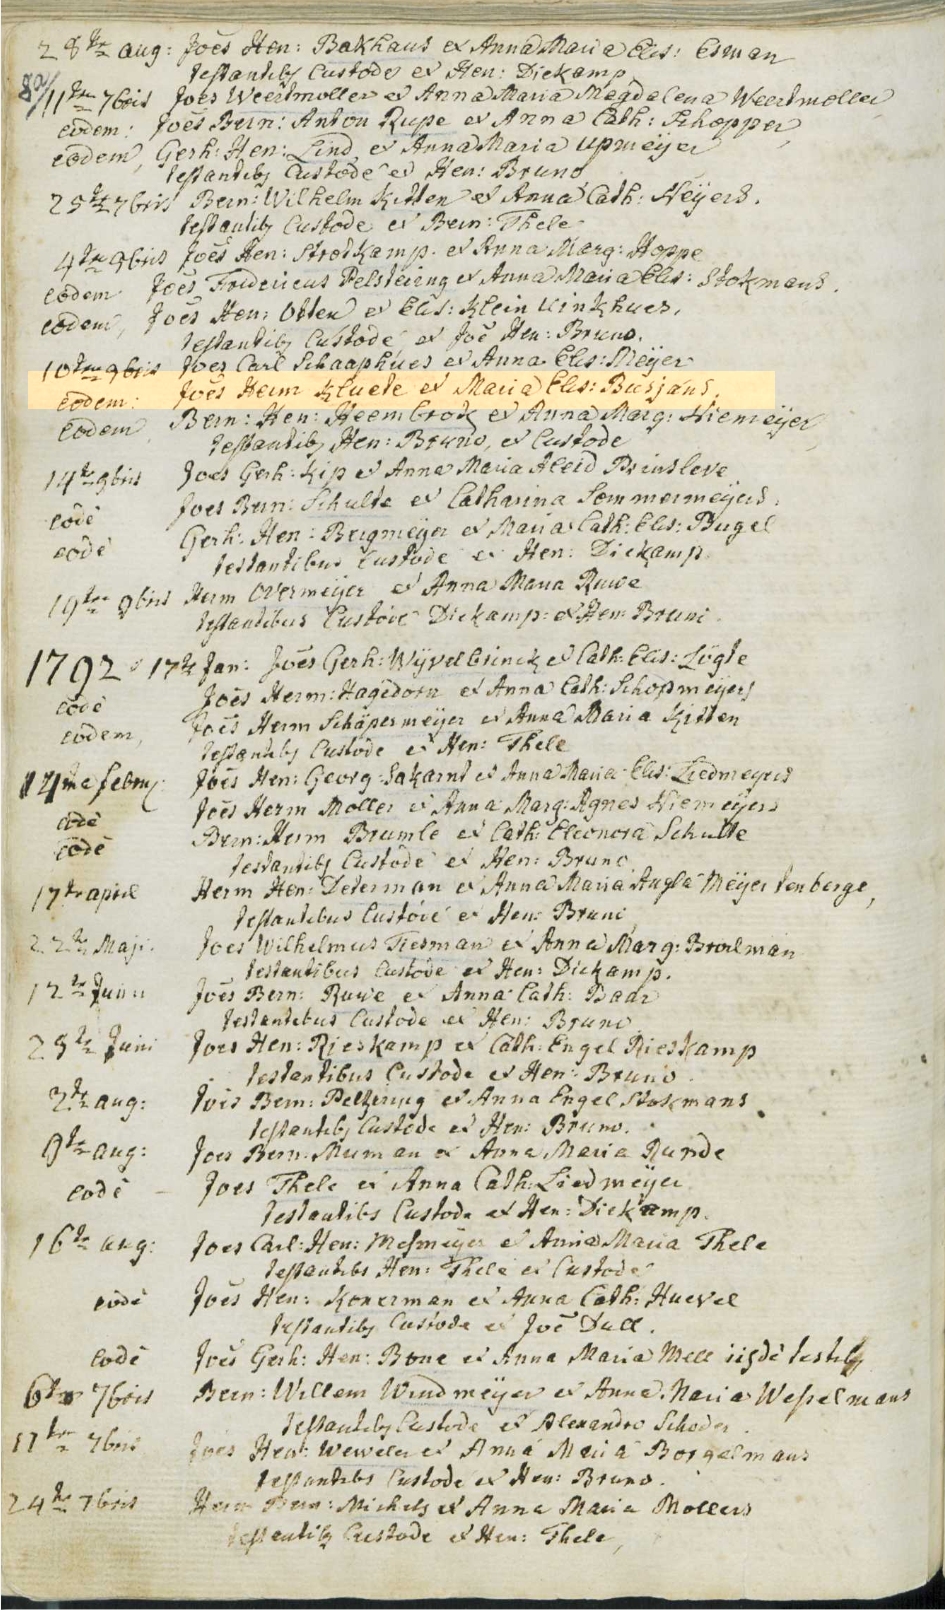 28ta aug: Joẽs Hen: Bakhaus et Anna Maria Elis: Esman
testantibq Custode et Hen: Diekamp
11tm 7bris Joes Weertmoller et Anna Maria Magdalena Weertmoller
eodem: Joẽs Bern: Anton Rupe et Anna Cath: Schopper
eodem, Gerh: Hen: Lind et Anna Maria upmeÿer
testantibq Custode et Hen: Bruno
25ta 7bris Bern: Wilhelm Kitten et Anna Cath: Meÿers.
testantibq Custode et Bern: Thele
4ta 9bris Joẽs Hen: Strotkamp. et Anna Marg: Hoppe
eodem Joẽs Fridericus Pelsteïng et Anna Maria Elis: Stokmans.
eodem, Joẽs Hen: Otten et Elis: Klein Vinkhues.
testantibq Custode et Joẽ Hen: Bruno.
10tma 9bris Joes Carl Schaaphues et Anna Elis: Meÿer
eodem: Joẽs Herm Kluete et Maria Elis: Busjans.
eodem, Bern: Hen: Heembrock et Anna Marg: Niemeÿer
testantibq Hen: Bruno, et Custode
14ta 9bris Joẽs Gerh: Kip et Anna Maria Aleid Brinsleve
eodẽ Joes Bern: Schulte et Catharina Sommermeÿers.
eodẽ Gerh: Hen: Bergmeÿer et Maria Cath: Elis: Bugel
testantibus Custode et Hen: Diekamp.
19ta 9bris Herm Overmeÿer et Anna Maria Ruwe
testantibus Custode Diekamp: et Hen: Bruno.
1792 17ta Jan: Joẽs Gerh: Wÿvelbrinck et Cath: Elis: Logte
eodẽ Joẽs Herm: Hagedorn et Anna Cath: Schopmeÿers
eodem, Joẽs Herm Schäpermeÿer et Anna Maria Kitten
testantibq Custode et Hen: Thele
14ma febry: Joẽs Hen: Georg: Sakarnt et Anna Maria Elis: Liedmeyers
eodẽ Joẽs Herm Moller et Anna Marg: Agnes Niemeÿers
eodẽ Bern: Herm Brumle et Cath: Eleonora Schulte
testantibq Custode et Hen: Bruno
17ta april Herm Hen: Determan et Anna Maria Angla Meÿer tenberge,
testantibus Custode et Hen: Bruno
22ta Maji. Joes Wilhelmus Tiesman et Anna Marg: Broelman
testantibus Custode et Hen: Diekamp.
12ta Junii Joẽs Bern: Ruwe et Anna Cath: Baar
testantibus Custode et Hen: Bruno
25ta Juni Joes Hen: Rieskamp et Cath: Engel Rieskamp
testantibus Custode et Hen: Bruno.
2ta aug: Joẽs Bern: Pelstring et Anna Engel Stokmans
testantibq Custode et Hen: Bruno.
9ta aug: Joes Bern: Muman et Anna Maria Runde
eodẽ Joes Thele et Anna Cath: Liedmeÿer
testantibs Custode et Hen: Diekamp.
16ta aug: Joes Carl: Hen: Mesmeÿer et Anna Maria Thele
testantibs Hen: Thele et Custode
eodẽ Joẽs Hen: Konerman et Anna Cath: Huevel
testantibq Custode et Joẽ Dull.
eodẽ Joẽs Gerh: Hen: Bone et Anna Maria Mell iisdẽ testibq
6ta 7bris Bern: Willem Windmeÿer et Anna Maria Wesselmans
testantibq Custode et Alexandro Schoder
17ta 7bris Joes Hen: Weweler et Anna Maria Borgelmans
testantibs Custode et Hen: Bruno.
24ta 7bris Herm Bern: Michels et Anna Maria Mollers
testantibq Custode et Hen: Thele,